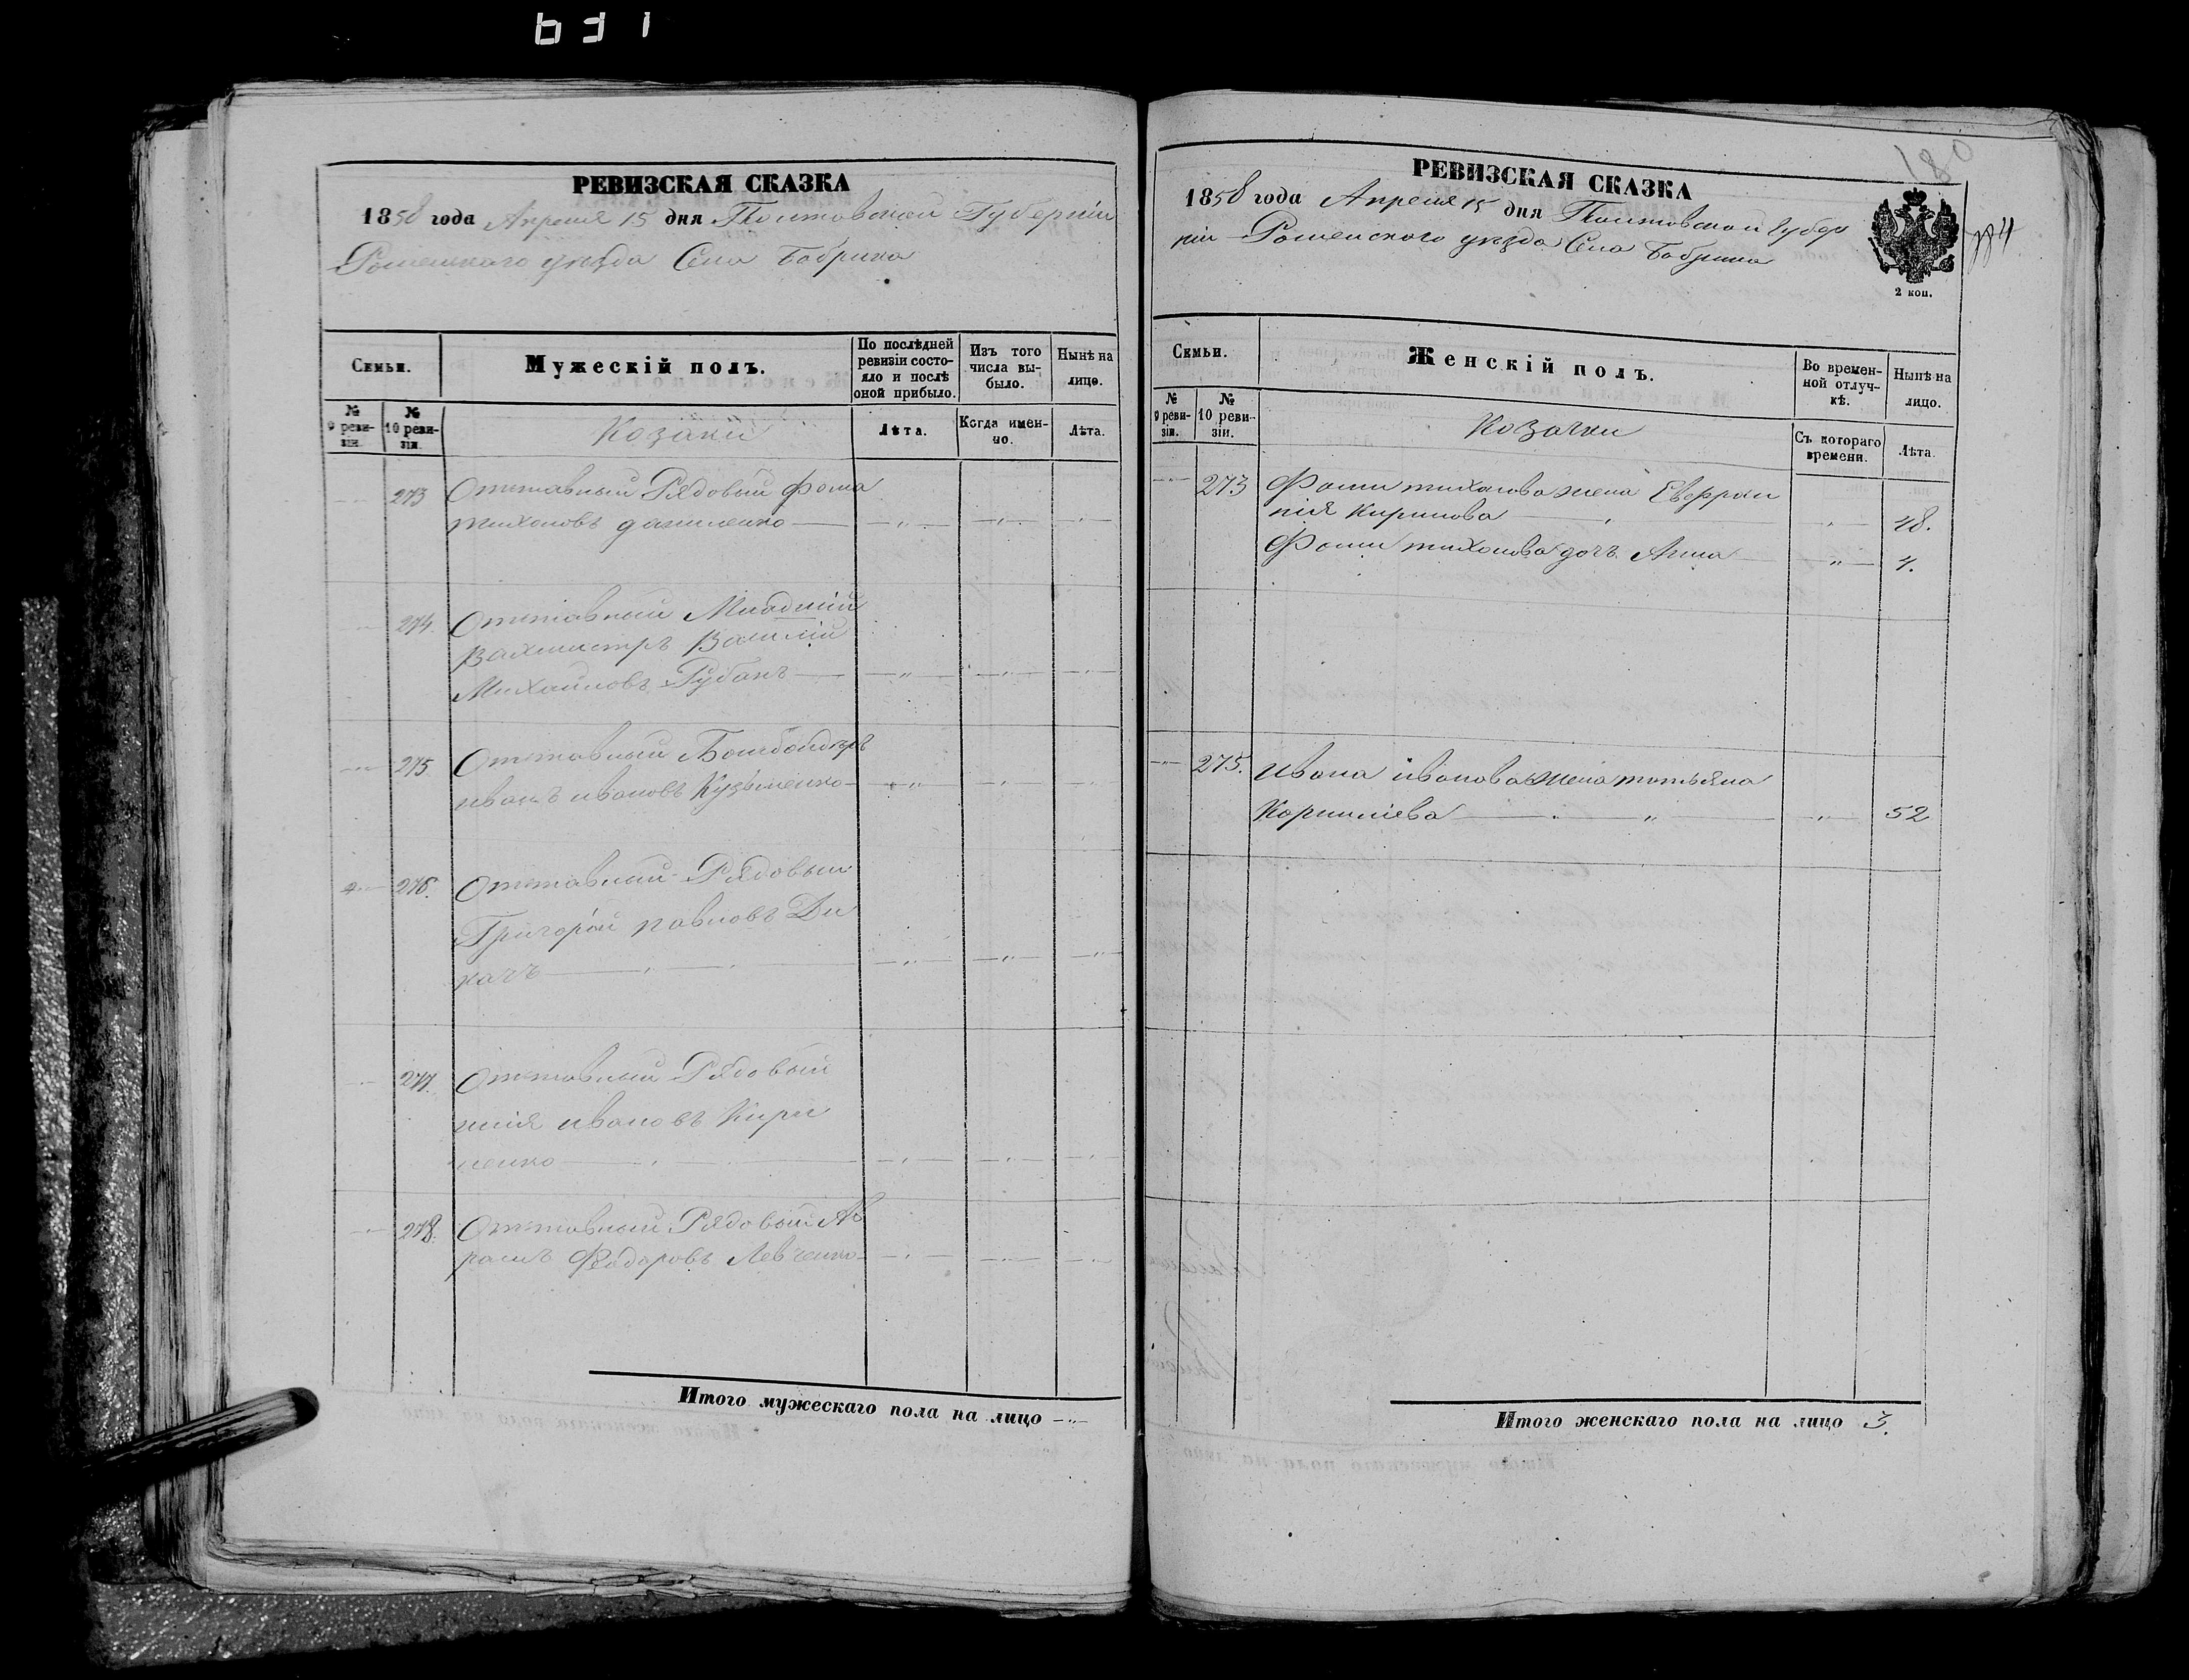 631
РЕВИЗСКАЯ СКАЗКА
1858 года Апреля 15 дня Полтавской Губерніи
Роменского уезда Села Бобрика
Семьи.
Мужескій полъ.
По послѣдней ревизіи состояло и послѣ оной прибыло.
Изъ того числа выбыло.
Нынѣ на лицо.
№ 9 ревизіи.
№ 10 ревизіи.
Козаки
Лѣта.
Когда именно.
Лѣта.
273 Отставный Рядовый Фома
тихоновъ даниленко — „ — „ — „
274. Отставный Младшій
Вахмистръ Василій
Михайловъ Губанъ — „ — „ — „
275 Отставный Бомбондиръ
иванъ ивановъ Кузьменко — „ — „ — „
276. Отставный Рядовый
Григорій павловъ Ди
качъ — „ — „ — „
277. Отставный Рядовый
ивановъ Кири
ленко — „ — „ — „
278. Отставный Рядовый Ав
рамъ Федоровъ Левченко — „ — „ — „
Итого мужескаго пола на лицо — „ —
180
РЕВИЗСКАЯ СКАЗКА
1858 года Апреля 15 дня Полтавской Губер
ніи Роменского уезда Села Бобрика
2 коп.
Семьи.
Женскій полъ.
Во временной отлучкѣ.
Нынѣ на лицо.
№ 9 ревизіи.
№ 10 ревизіи.
Козачки
Съ котораго времени.
Лѣта.
273 Фомы тихонова жена Евфраси
нія Кирилова — „ — 48.
Фомы тихонова дочь Анна — „ — 4.
275. ивана иванова жена татьяна
Корнилієва — „ — 52
Итого женскаго пола на лицо 3.